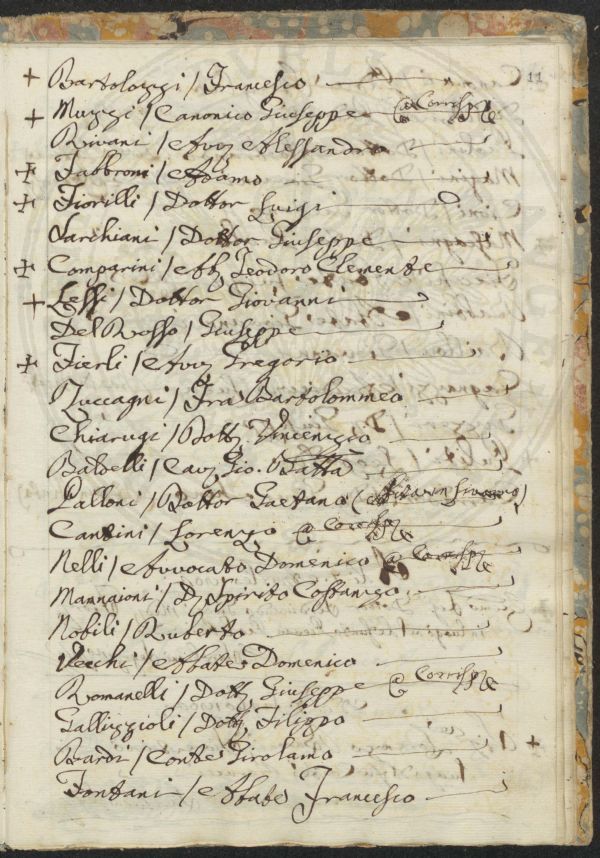 11
+ Bartolozzi / Francesco
+ Muzzi / Canonico Giuseppe @ Corrisp.te
Rivani / Avv. Alessandro
+ Fabbroni / Adamo
+ Fiorilli / Dottor Luigi
Sarchiani / Dottor Giuseppe
+ Comparini / Ab. Teodoro Clemente
+ Lessi / Dottor Giovanni
Del Rosso / Giuseppe
+ Fierli / Avv. Gregorio
Zuccagni / Fra Bartolommeo
Chiarugi / Dott. Vincenzio
Baldelli / Cav. Gio. Batta
Palloni / Dottor Gaetano
Cantini / Lorenzo @ Corrisp.te
Nelli / Avvocato Domenico @ Corrisp.te
Mannaioni / D. Spirito Costanzo
Nobili / Ruberto
Vecchi / Abate Domenico
Romanelli / Dott. Giuseppe @ Corrisp.te
Gallizzioli / Dott. Filippo
Bardi / Conte Girolamo +
Fontani / Abate Francesco